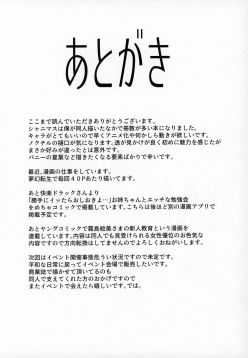 あとがき
ここまで読んでいただきありがとうございます。
シャニマスは僕が同人描いたなかで冊数が多い本になりました。
キャラがとてもいいので早くアニメ化や何かしら動きが欲しいです。
ノクチルの樋口が気になります。透が見かけが良く初めに魅力を感じたが
まさか好みが違ったとは意外です。
バニーの夏葉など描きたくなる要素ばかりで辛いです。
最近、漫画の仕事をしています。
夢幻転生で毎回40Pあたり描いてます。
あと快楽ドラックさんより
「勝手にイッたらおしおきよ…♡」お姉ちゃんとエッチな勉強会
をめちゃコミックで掲載しています。こちらは後ほど別の漫画アプリで
掲載予定です。
あとヤングコミックで霧島絵美さまの新人教育という漫画を
連載しています。内容は同人でも見受けられる女性優位のお色気な
内容ですので方向転換はしてませんのでよろしくおねがいします。
次回はイベント開催事態危うい状況ですので未定です。
平和な日常に戻ってイベント会場で販売したいです。
商業誌で描かせて頂いてるのも
同人で支えてくれた方のおかげですので
またイベントで会えたら嬉しいです。では。